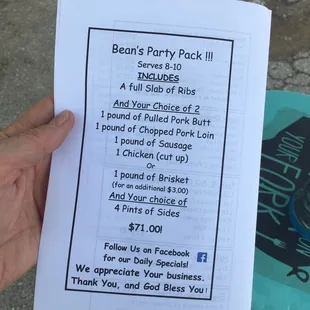 Bean's Party Pack !!!
Serves 8-10
INCLUDES
A full Slab of Ribs
And Your Choice of 2
1 pound of Pulled Pork Butt
1 pound of Chopped Pork Loin
1 pound of Sausage
1 Chicken (cut up)
Or
1 pound of Brisket
(for an additional $3.00)
And Your choice of
4 Pints of Sides
$71.00!
Follow Us on Facebook
for our Daily Specials!
We appreciate Your business.
Thank You, and God Bless You!
YOUR
FORK
ON